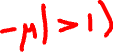 -μ| > 1)